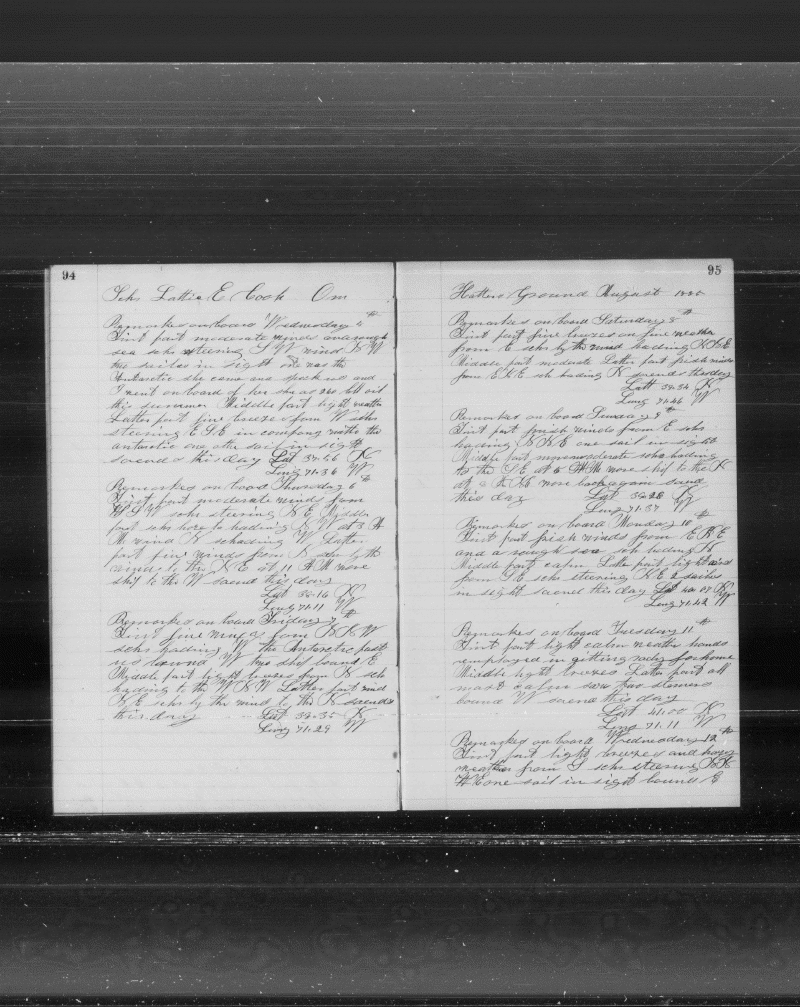 94
Schr Lottie E. Cook On
Remarks on board Wednesday 5th
First part moderate winds and a rough
sea schr steering S W wind N W
two sailes in sight one was the
Antarctic she came and spoke us and
I went on board of her she as 260 bbl oil
this summer Middle part light weather
Latter part fine breeze from W schr
steering E S E in company with the
antarctic one other sail in sight
so ends this day Lat 37-56 N
Long 71-36 W
Remarks on board Thursday 6th
First part moderate winds from
W S W schr steering N E Middle
part schr hove to hading N W at 3 A
M wind N schr hading W Latter
part fine winds from N schr by the
wind to the N E at 11 A M wore
ship to the W so end this day
Lat 38-16 N
Long 71-11 W
Remarks on board Friday 7th
First fine winds from N N W
schr hading W the Antarctic past
us bound W two ship bound E
Middle part light breezes from N sch
hading to the W N W Latter part wind
N E schr by the wind to the N so ends
this day Lat 38-35 N
Long 71-29 W
95
Hattras Ground August 1880
Remarks on board Saturday 8th
First part fine breezes an fine weather
from E schr by the wind hading N N E
Middle part moderate Latter part frish winds
from E N E sch hading N so ends this day
Latt 38-34 N
Long 71-46 W
Remarks on board Sunday 9th
First part frish winds from E schr
hading N N E one sail in sight
Middle part more moderate schr hading
to the S E at 5 A M wore ship to the N
at wore back again so end
this day Lat 38-28 N
Long 71-37 W
Remarks on board Monday 10th
First part frish winds from E N E
and a rough sea sch hading N
Middle part calm Later part light wind
from S E schr steering N E 2 sailes
in sight so end this day Lat 40-07 N
Long 71-42 W
Remarks on board Tuesday 11th
First part light calm weather hands
employed in gitting redy for home
Middle light breezes Later part all
most calm saw two stemers
bound W so end this day
Lat 41-00 N
Long 71-11 W
Remarks on board Wednesday 12th
First part light breezes and hazy
weather from S schr steering N N
W one sail in sight bound E